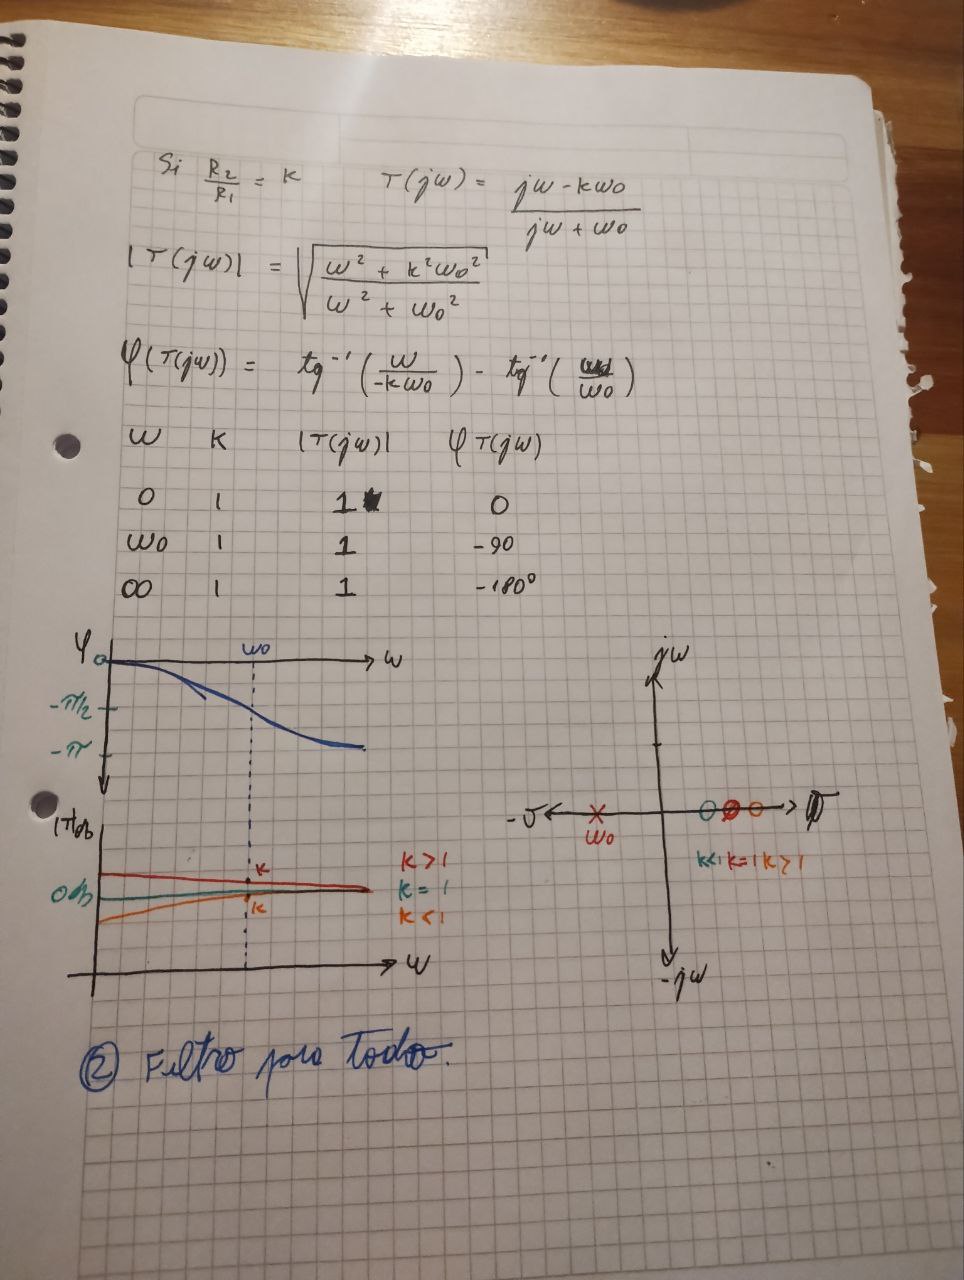 Si R2/R1 = K T(jω) = (jω - kω0)/(jω + ω0)
|T(jω)| = √((ω² + k²ω0²)/(ω² + ω0²))
φ(T(jω)) = tg⁻¹(ω/-kω0) - tg⁻¹( /ω0)
ω K |T(jω)| φ T(jω)
0 1 1 0
ω0 1 1 -90
∞ 1 1 -180°
φ
0
ω0
ω
-π/2
-π
jω
-σ
ω0
k<1 k=1 k>1
-jω
|T|db
0db
k
k
k > 1
k = 1
k < 1
ω
② Filtro pasa Todo.